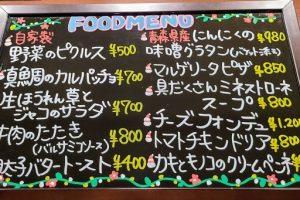 FOODMENU
自家製
野菜のピクルス ¥500
真鯛のカルパッチョ ¥700
生ほうれん草と
ジャコのサラダ ¥700
牛肉のたたき
(バルサミコソース) ¥800
明太子バタートースト ¥400
青森県産にんにくの ¥980
味噌グラタン(バゲット付)
マルゲリータピザ ¥850
具だくさんミネストローネ
スープ ¥800
チーズフォンデュ ¥1,200
トマトチキンドリア ¥800
カキとキノコのクリームペンネ